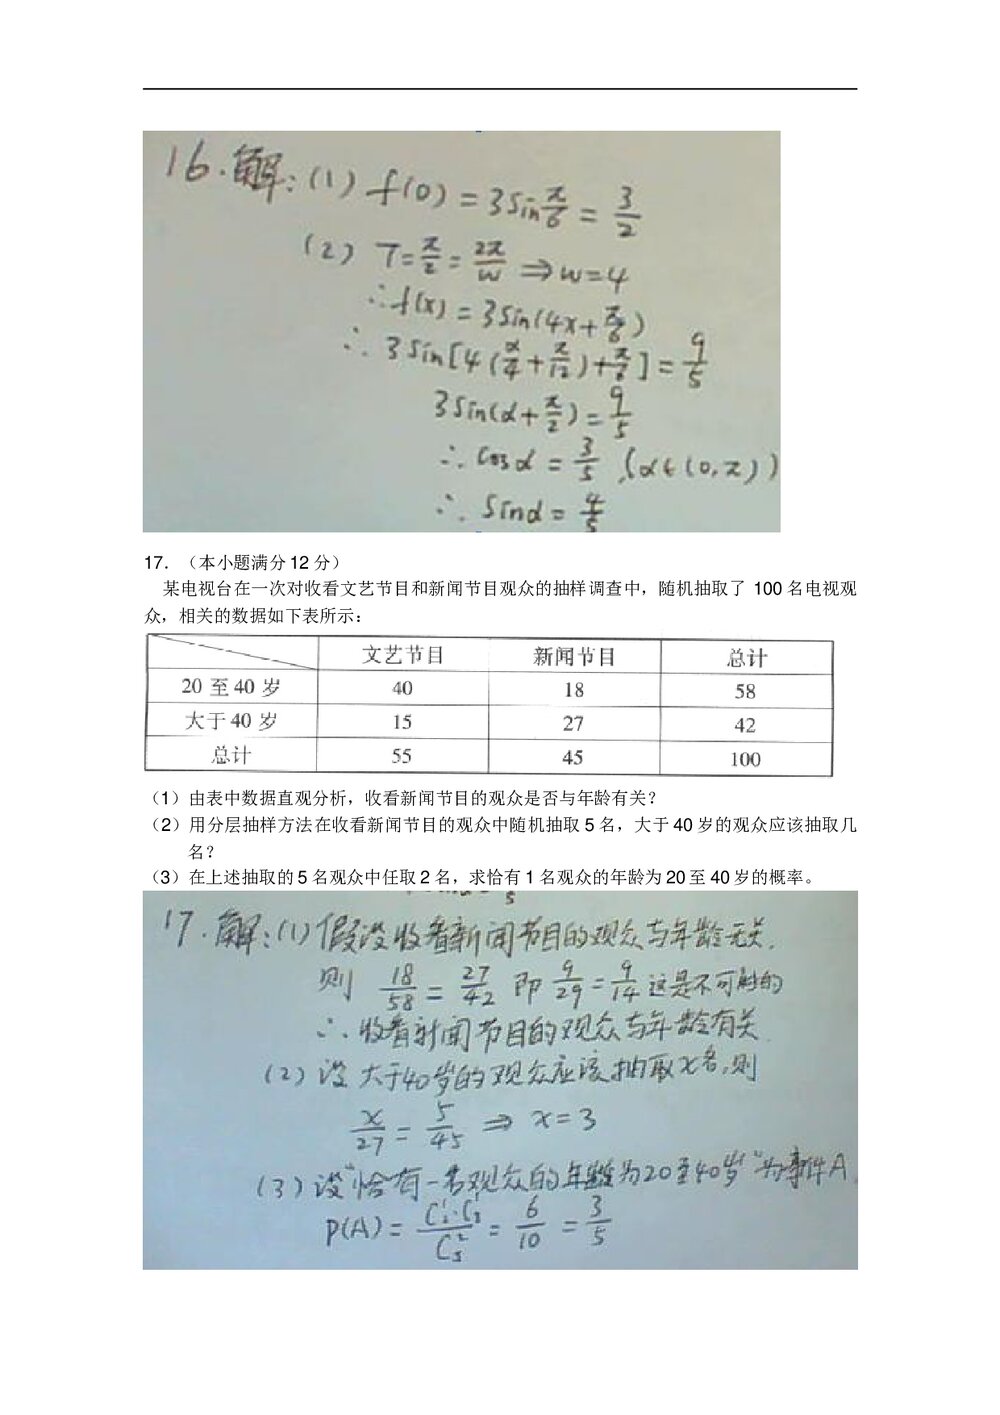 16.解:(1) f(0)=3sin π/6 = 3/2
(2) T=π/2=2π/w ⇒w=4
∴f(x)=3sin(4x+π/6)
∴3sin[4(α/4+π/12)+π/6]=9/5
3sin(α+π/2)=9/5
∴cosα=3/5,(α∈(0,π))
∴sinα=4/5
17.(本小题满分12分)
某电视台在一次对收看文艺节目和新闻节目观众的抽样调查中，随机抽取了 100 名电视观
众，相关的数据如下表所示：
文艺节目 新闻节目 总计
20 至 40 岁 40 18 58
大于 40 岁 15 27 42
总计 55 45 100
（1）由表中数据直观分析，收看新闻节目的观众是否与年龄有关？
（2）用分层抽样方法在收看新闻节目的观众中随机抽取 5 名，大于 40 岁的观众应该抽取几
名？
（3）在上述抽取的 5 名观众中任取 2 名，求恰有 1 名观众的年龄为 20 至 40 岁的概率。
17.解:(1)假设收看新闻节目的观众与年龄无关.
则 18/58=27/42 即 9/29=9/14 这是不可能的
∴收看新闻节目的观众与年龄有关
(2)设大于40岁的观众应该抽取x名,则
x/27=5/45 ⇒ x=3
(3)设"恰有一名观众的年龄为20至40岁"为事件A.
P(A)=C₂¹·C₃¹/C₅²=6/10=3/5